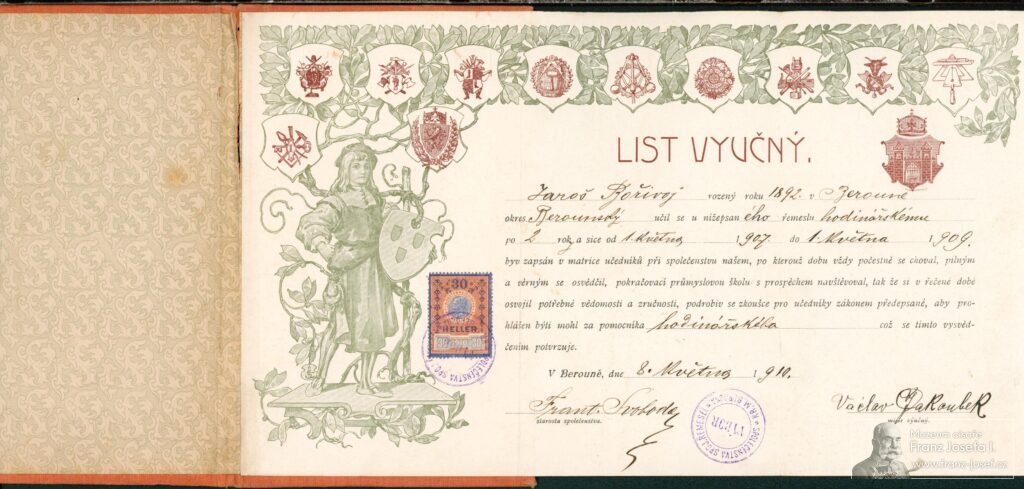 LIST VYUČNÝ.
Jaroš Bořivoj rozený roku 1892. v Berouně
okres Berounský učil se u nížepsaného řemeslu hodinářskému
po 2 rok, a sice od 1. května 1907 do 1. Května 1909.
byv zapsán v matrice učedníků při společenstvu našem, po kterouž dobu vždy počestně se choval, pilným
a věrným se osvědčil, pokračovací průmyslovou školu s prospěchem navštěvoval, tak že si v řečené době
osvojil potřebné vědomosti a zručnosti, podrobiv se zkoušce pro učedníky zákonem předepsané, aby pro-
hlášen býti mohl za pomocníka hodinářského což se tímto vysvěd-
čením potvrzuje.
V Berouně, dne 8. Května 1910.
Frant. Svoboda
starosta společenstva.
Václav Jakoubek
mistr výučný.
30
HELLER
30 30
SPOLEČENSTVA SPOJ.
SPOLEČENSTVA SPOJ. ŘEMESEL
VÝBOR
Muzeum císaře
Franz Josefa I.
www.franz-josef.cz